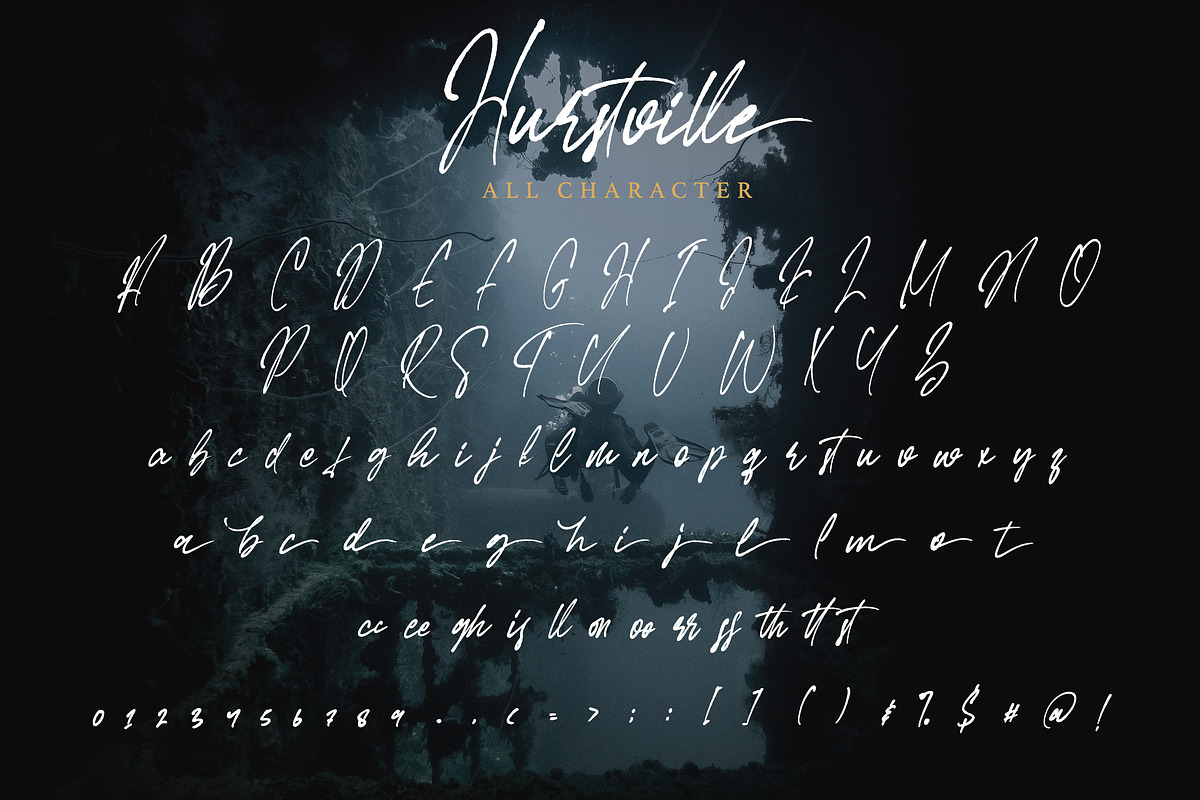 Hurstville
ALL CHARACTER
A B C D E F G H I J K L M N O
P Q R S T U V W X Y Z
a b c d e f g h i j k l m n o p q r s t u v w x y z
a b c d e g h i j l l m o t
cc ee gh is ll on oo rr ss th tt st
0 1 2 3 4 5 6 7 8 9 . , . < = > ; : [ ] ( ) & % $ # @ !